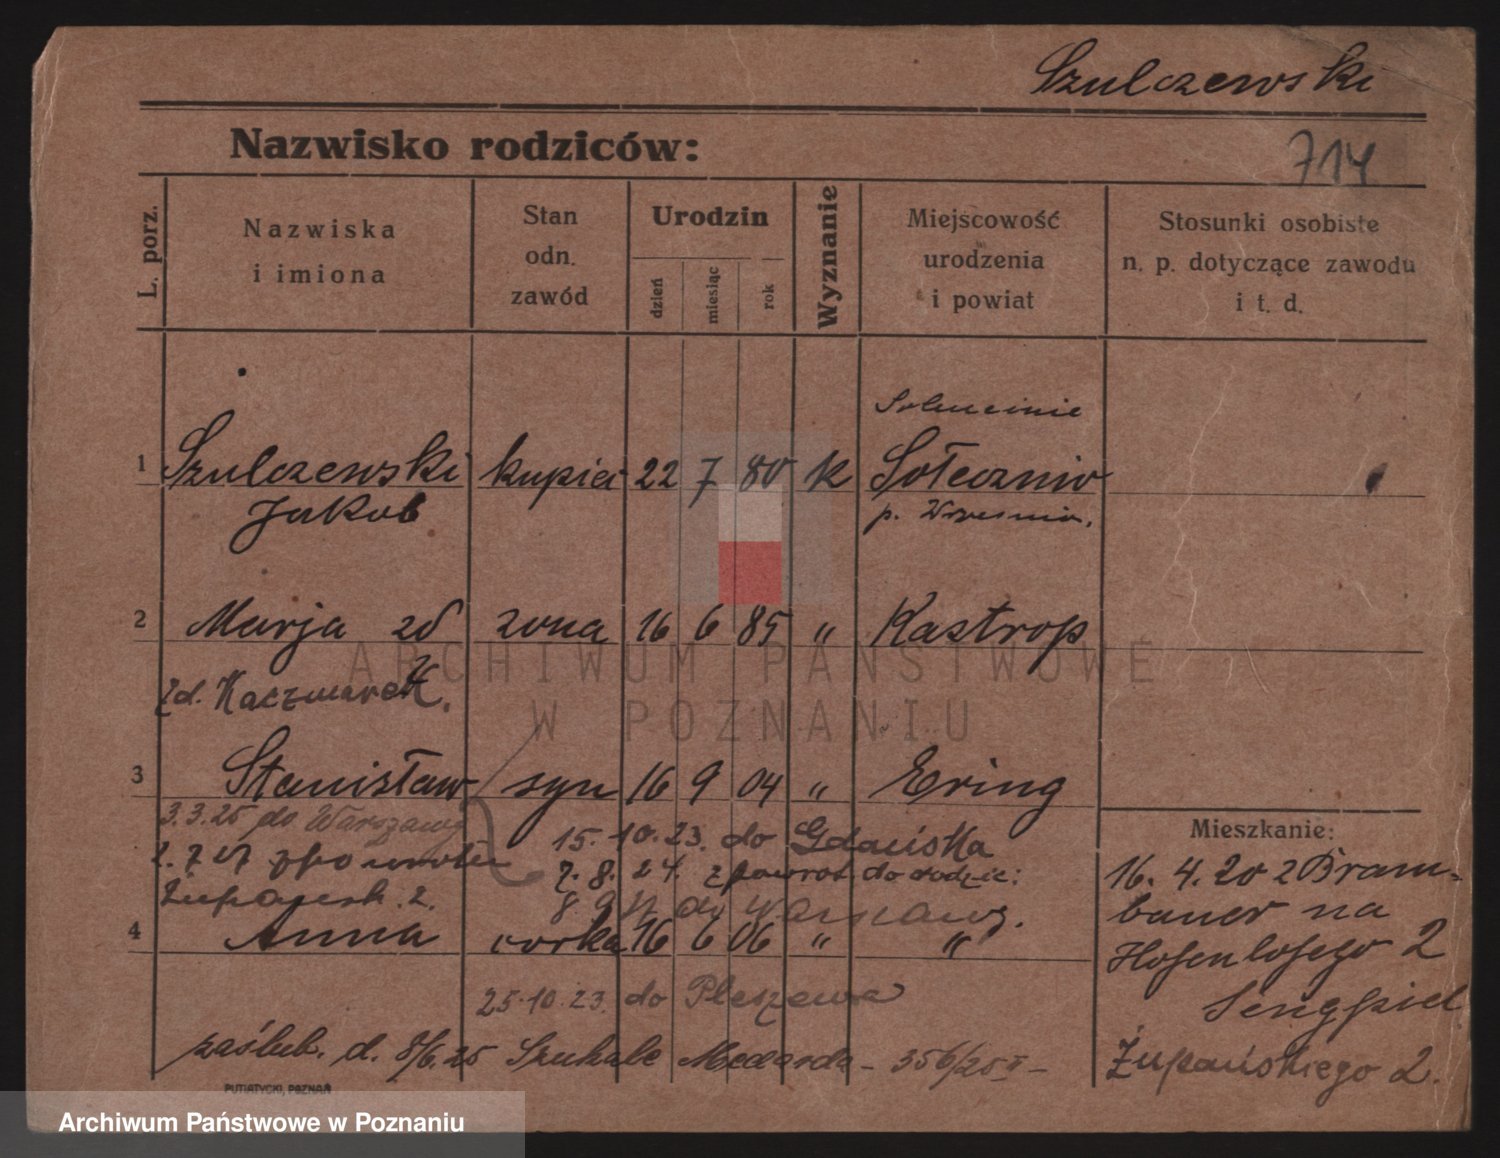 Szulczewski
Nazwisko rodziców:
714
L. porz.
Nazwiska
i imiona
Stan
odn.
zawód
Urodzin
dzień
miesiąc
rok
Wyznanie
Miejscowość
urodzenia
i powiat
Stosunki osobiste
n. p. dotyczące zawodu
i t. d.
1 Szulczewski kupiec 22 7 80 k
Jakob
p. Września.
2 Marja zd żona 16 6 85 " Kastrop
Zd. Kaczmarek.
3 Stanisław syn 16 9 04 " Ering
3.3.25 do Warszawy
15.10.23. do Gdańska
7.8.24. z powrot. do rodzic:
Żupańsk. 2.
do Warszawy.
4 Anna córka 16 6 06 " "
25.10.23. do Pleszewa
zaślub. d. 8/6.25 Szukale Medarda - 356/25 II -
Mieszkanie:
16. 4. 20 z Bram-
bauer na
Hohenlohego 2
Sengspiel
Żupańskiego 2.
PUTIATYCKI, POZNAŃ
ARCHIWUM PAŃSTWOWE
W POZNANIU
Archiwum Państwowe w Poznaniu